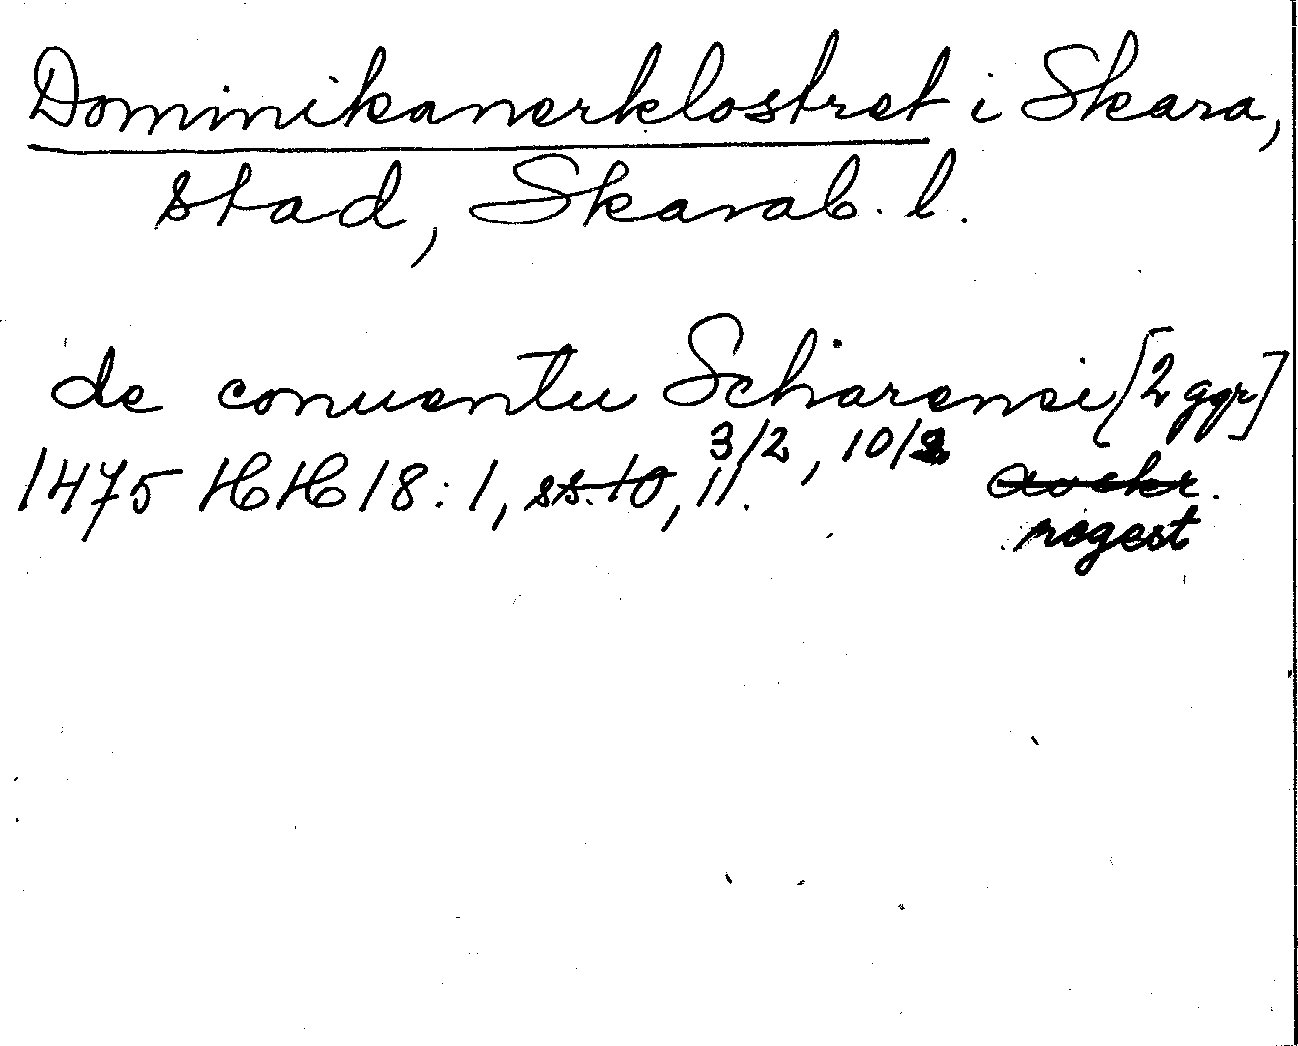 Dominikanerklostret i Skara,
stad, Skarab. l.
de conuentu Scharensi [2 ggr]
3/2, 10/2
1475 HH 18:1, ss. 10, 11. avskr.
regest